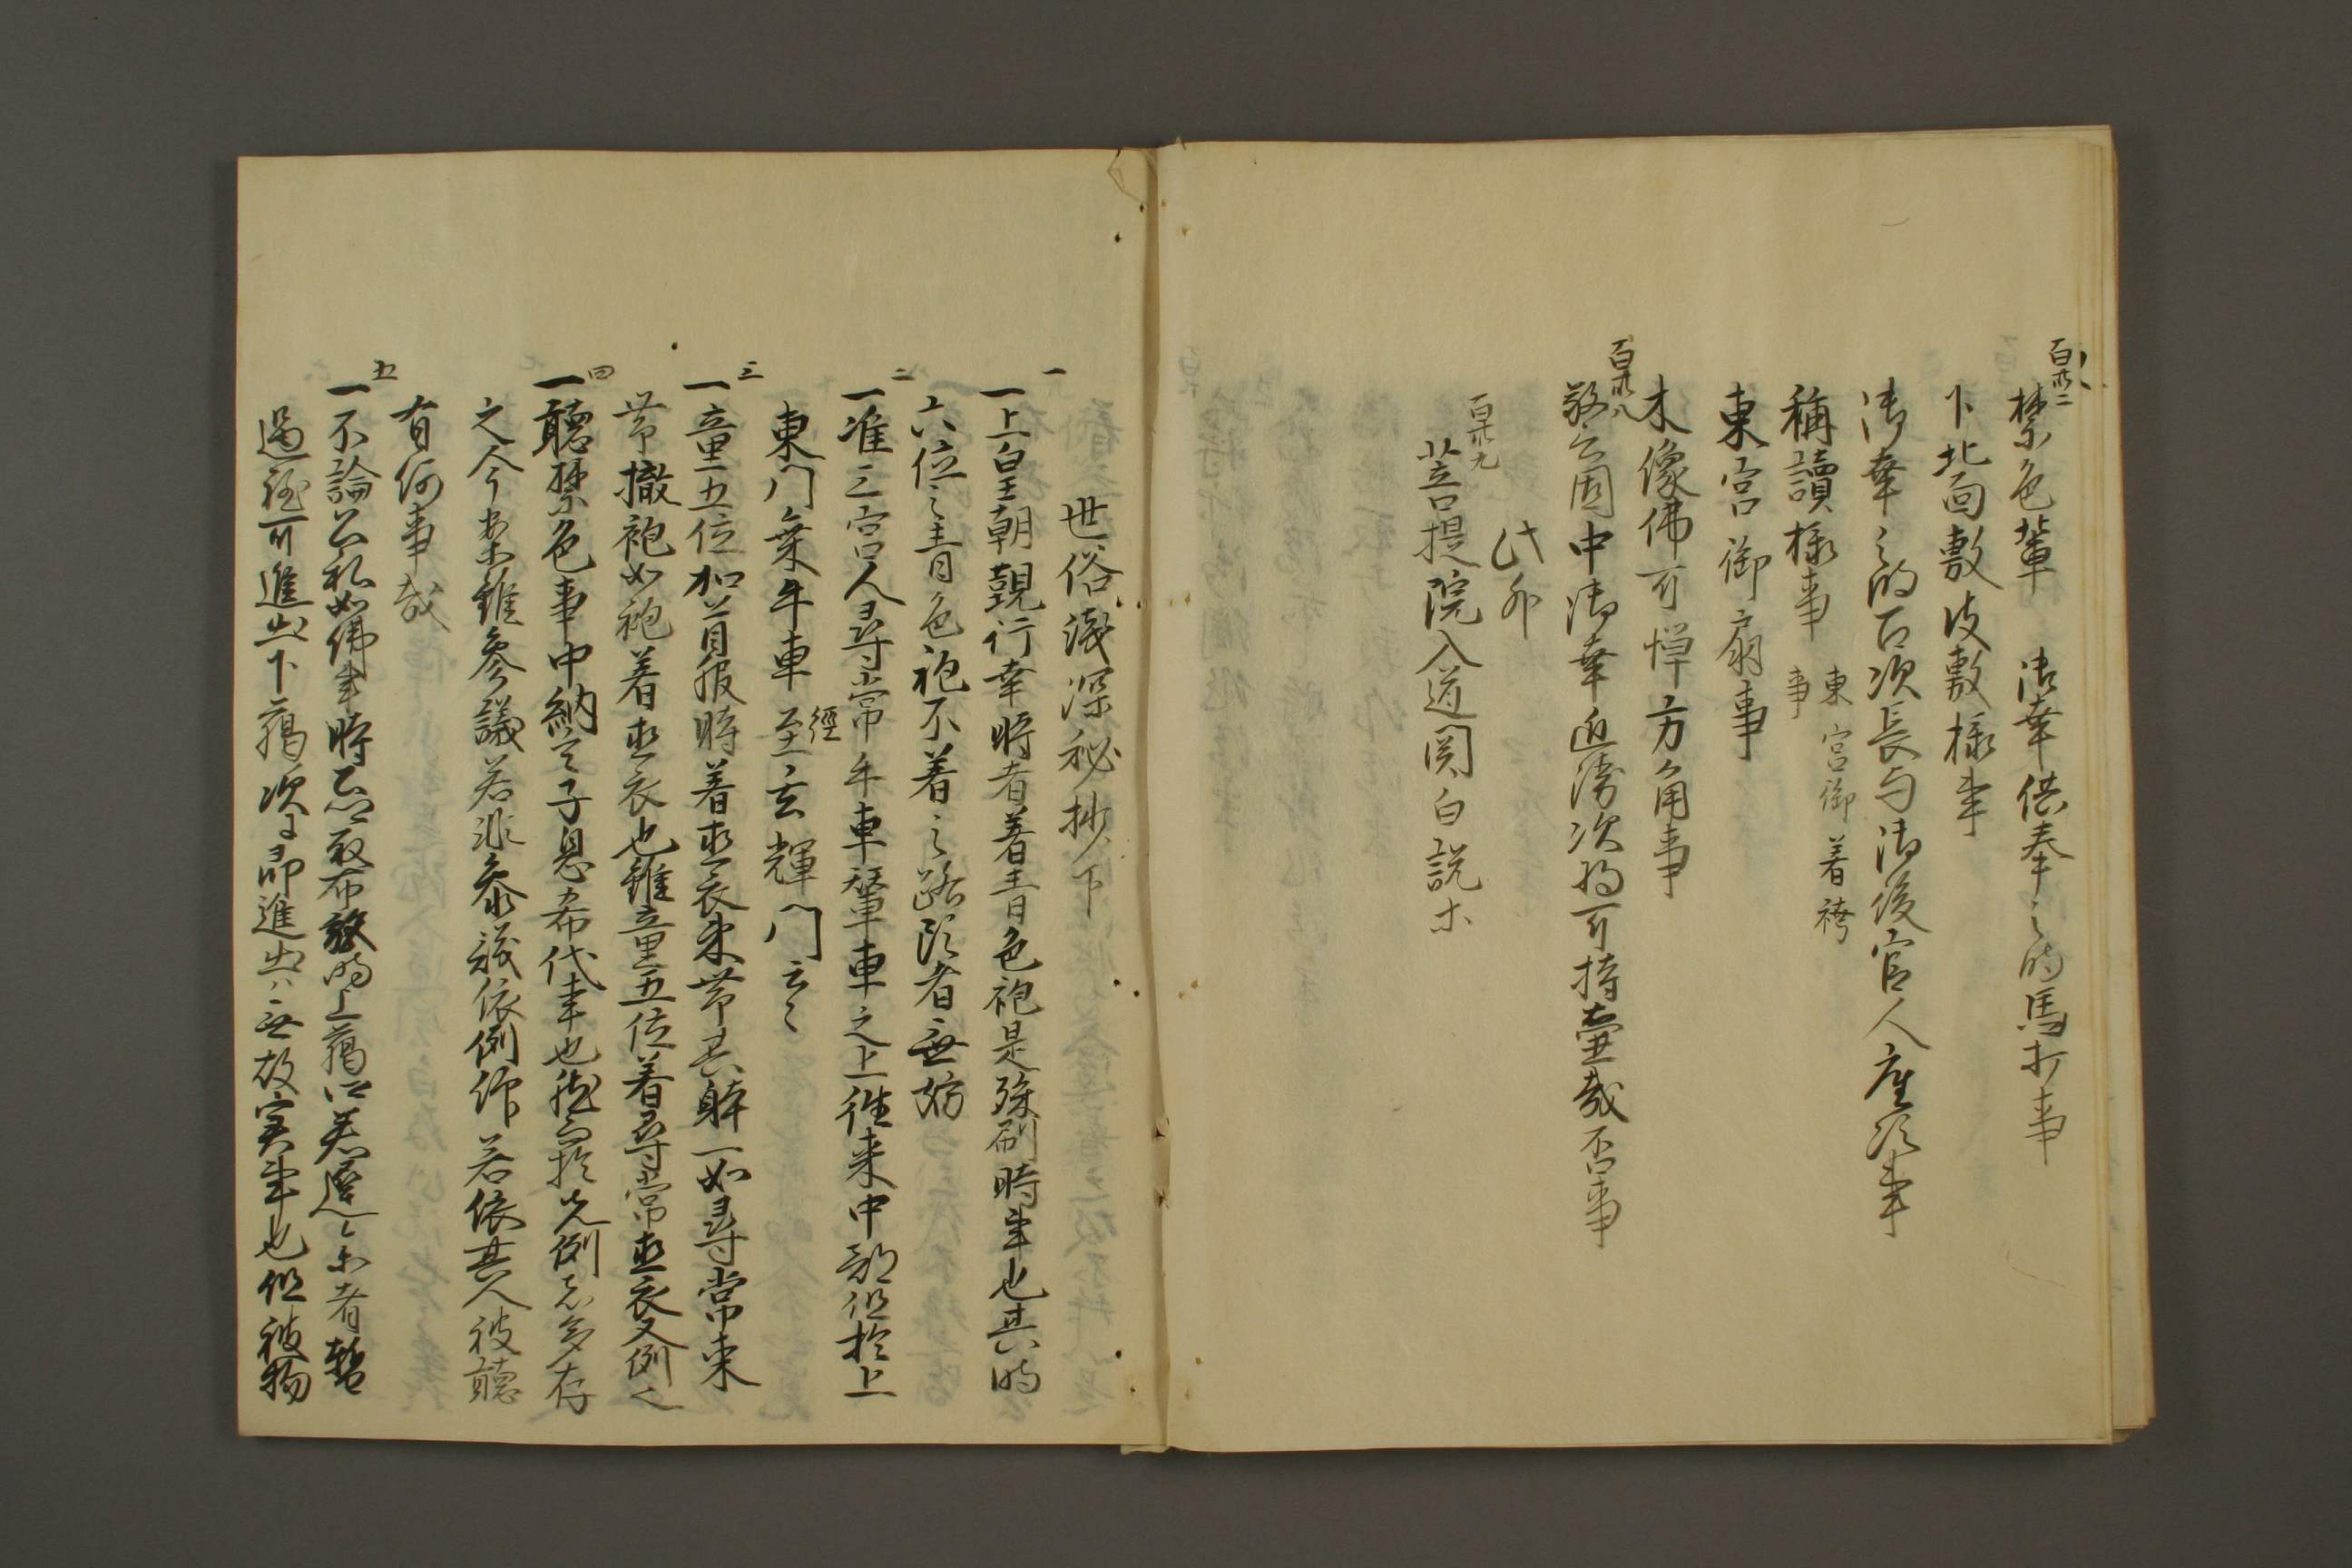 百卅二
禁色輩 御幸供奉之時馬打事
下北面敷皮敷様事
御幸之時召次長与御後官人座次事
稱讀様事 東宮御着袴事
東宮御扇事
木像佛可憚方角事
百卅八
警固中御幸近衛次将可持壷哉否事
此外
百卅九
菩提院入道関白説等
世俗浅深秘抄下
一
一上皇朝覲行幸時者著青色袍是殊刷時事也其時
六位之青色袍不着之臨時者無妨
二
一准三宮人尋常牛車輦車之上徃来中郭但於上
東門乗牛車經至玄輝門云々
三
一童五位加首服時着直衣束帯其躰一如尋常束
帯撤袍如袍着直衣也雖童五位着尋常直衣又例也
四
一聽禁色事中納言子息希代事也然而於先例者多存
之今案雖参議若非参議依例作若依其人被聽
有何事哉
五
一不論公私如佛事時取布施時上臈公若遅々者暫
過程可進出下臈次即進出無故実事也但被物